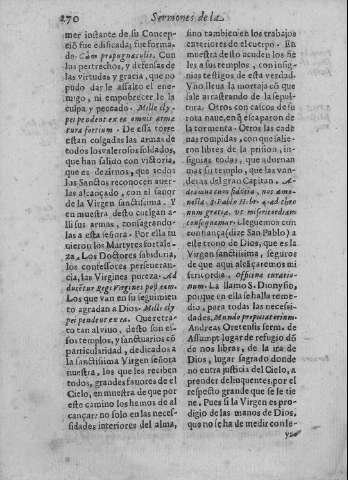 270 Sermones de la
mer instante de su Concepcio
fue edificada; fue forma
da. Cum propugnaculis. Con
los pertrechos, y defensas de
las virtudes y gracia, que no
pudo dar le assalto el ene-
migo, ni empobrecer le la
culpa y peccado. Mille cly
pei pendent ex ea omnis arma
tura fortium. De essa torre
estan colgadas las armas de
todos los valerosos soldados,
que han salido con victoria,
que es dezirnos, que todos
los Sanctos reconocen auer
las alcaçado, con el fauor
de la Virgen sanctissima. Y
en muestra desto cuelgan a-
lli sus armas, consagrando-
las a esta señora. Por ella tu
uieron los Martyres fortale-
za. Los Doctores sabiduria,
los confessores perseueran-
cia, las Virgines pureza. Ad
ducẽtur Regi Virgines post eam.
Los que van en su seguimien
to agradan a Dios. Mille cly
pei pendent ex ea. Que retra-
to tan al viuo, desto son es-
sos templos, y sanctuarios cõ
particularidad, dedicados a
la sanctissima Virgen señora
nuestra, los que les reciben
todos, grandes fauores de el
Cielo, en muestra de que por
este camino los hemos de al
cançar: no solo en las neces-
sidades interiores del alma,
sino tambien en los trabajos
exteriores de el cuerpo. En
muestra desto acuden los fie
les a sus templos, con insig-
nias testigos de esta verdad.
Vno lleua la mortaja cõ que
sale arrastrando de la sepul-
tura. Otros con cascos de su
rota naue, en q̃ escaparon de
la tormenta. Otros las cade
nas rompidas, con que salie-
ron libres de la prision, in-
signias todas, que adornan
mas su templo, que las van-
deras del gran Capitan. A-
deamus cum fiducia, nos amo-
nesta S. Pablo Heb. 4. ad thro
num gratiæ, vt misericordiam
consequamur. Lleguemos con
confiança (dize San Pablo) a
esse trono de Dios, que es la
Virgen sanctissima, seguros
de que aqui alcãçaremos mi
sericordia. Officina curatio-
num. La llamo S. Dionysio,
por que en ella se halla reme-
dio, para todas las necessi-
dades. Mundo propitiatorium.
Andreas Cretensis serm. de
Assumpt lugar de refugio dõ
de nos libras, de la ira de
Dios, lugar sagrado donde
no entra justicia del Cielo, a
prender delinquentes, por el
respecto grande que se le tie
ne. Pues si la Virgen es pro-
digio de las manos de Dios,
que no se ha de medir con le-